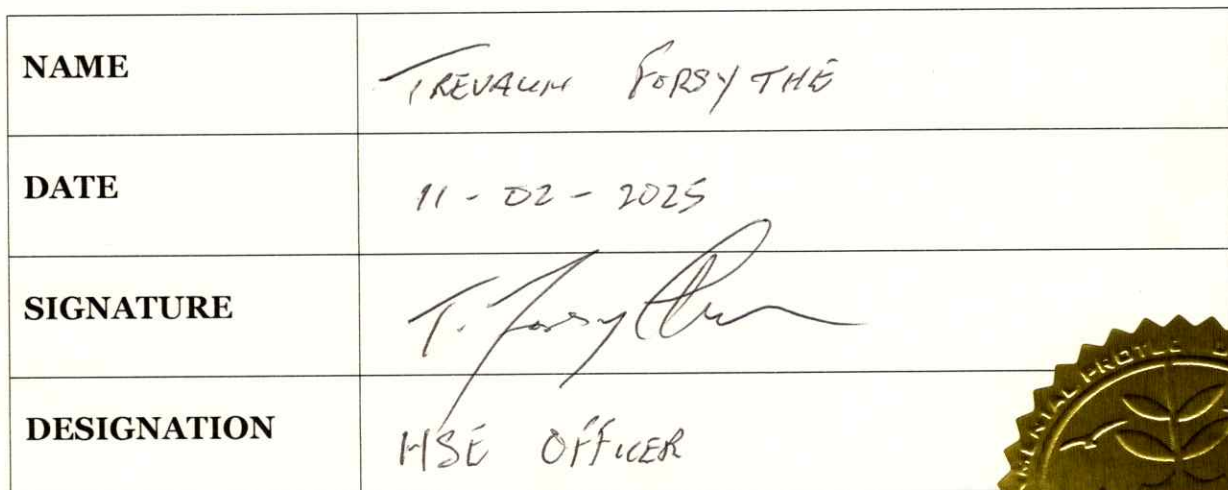 NAME TREVAUN FORSYTHE
DATE 11-02-2025
SIGNATURE T. Forsythe
DESIGNATION HSE OFFICER
MENTAL PROTE